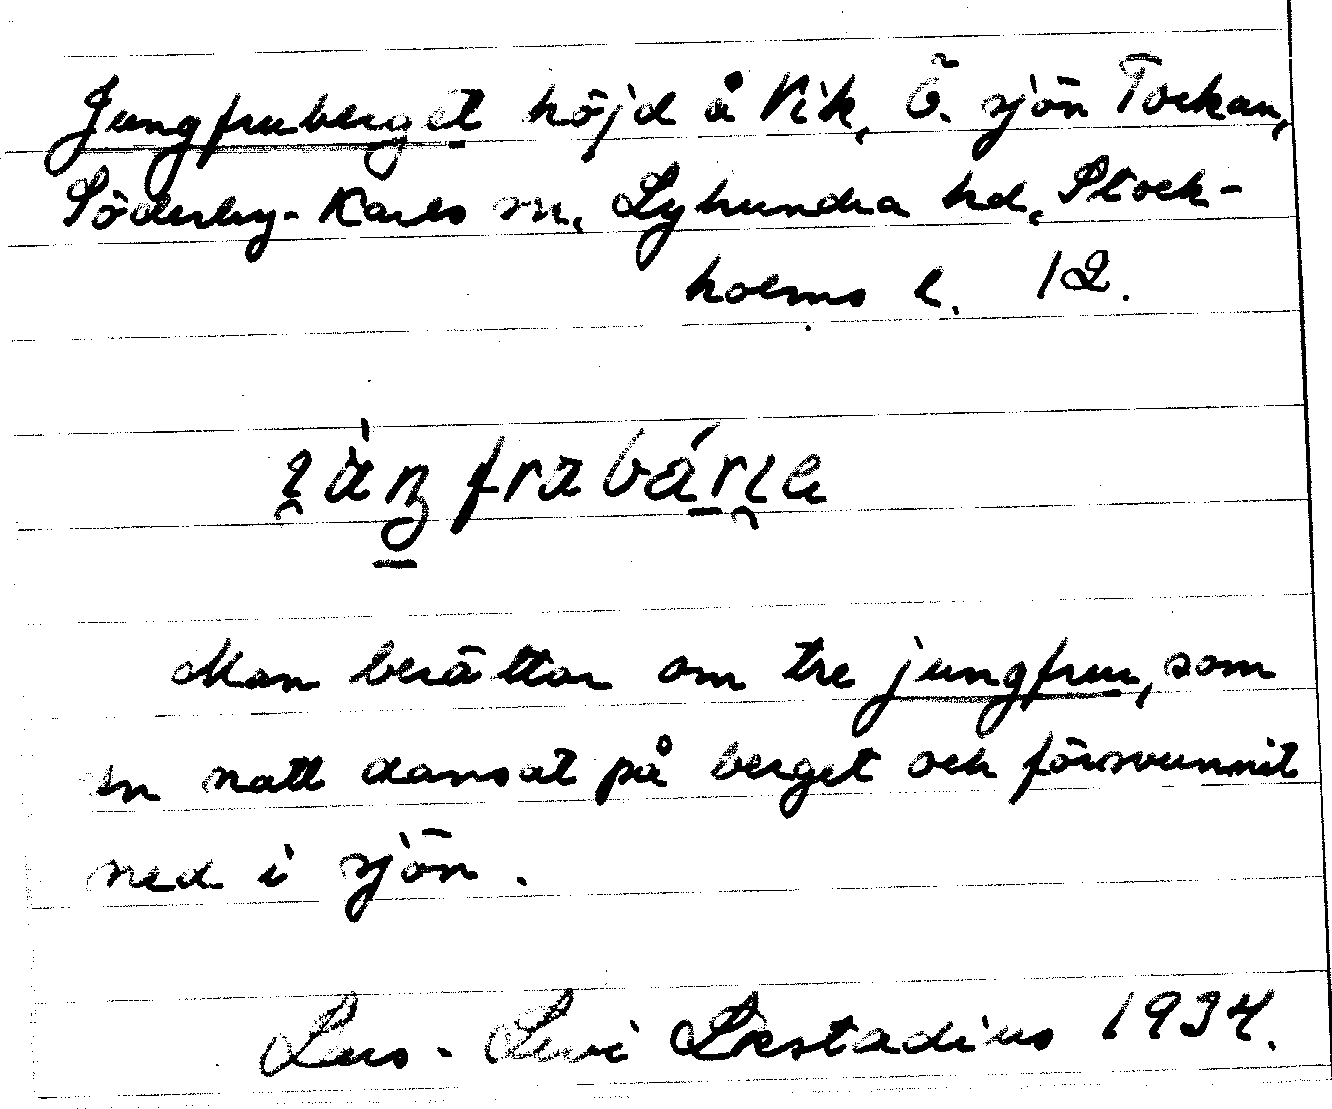 Jungfruberget höjd å Vik, Ö. sjön Tockan,
Söderby-Karls sn, Lyhundra hd, Stock-
holms l. 12.
Man berättar om tre jungfrur, som
en natt dansat på berget och försvunnit
ned i sjön.
Lars-Levi Læstadius 1934.